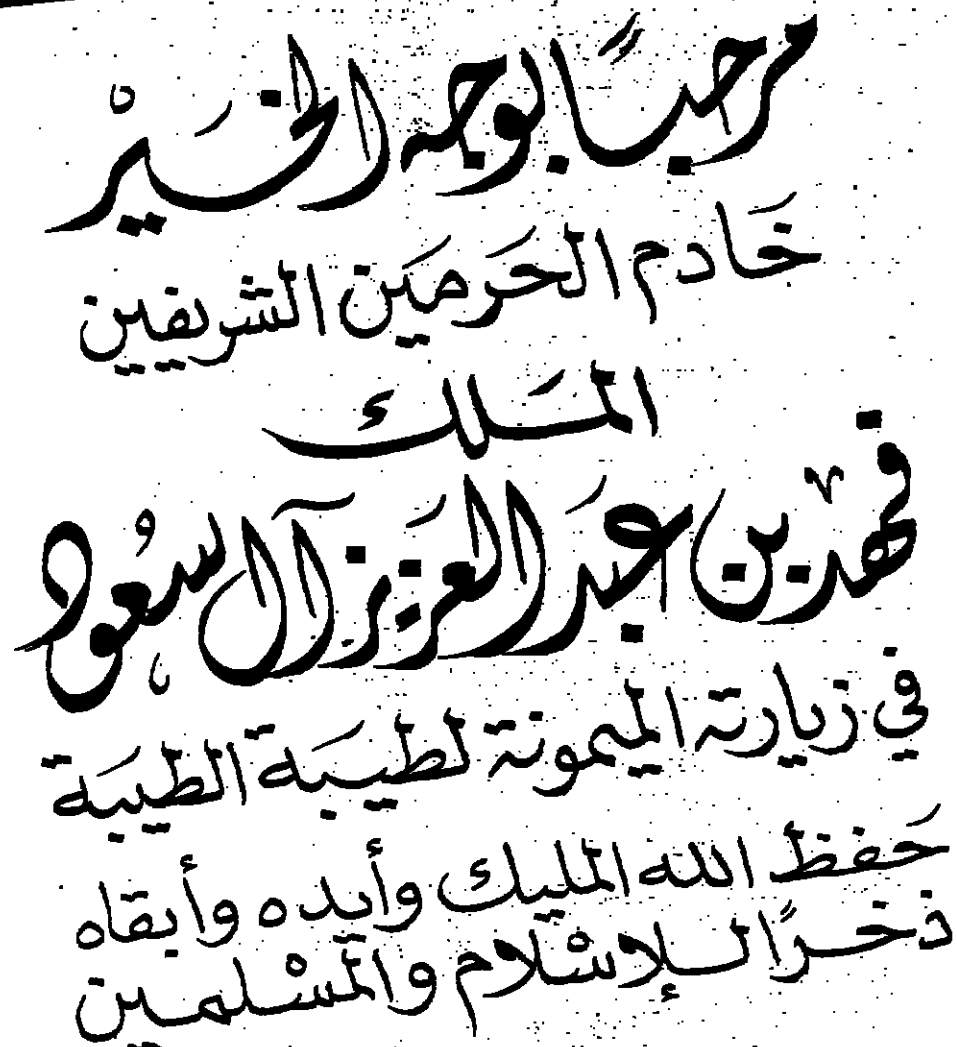 مرحبًا بوجه الخيْر
خَادم الحَرمَين الشريفين
الملَك
فهد بن عبَد العَزيز آل سعُود
في زيارته الميمونة لطيبَة الطيبَة
حَفظ الله المليك وأيده وأبقاه
ذخرًا للإسْلام والمسْلمين